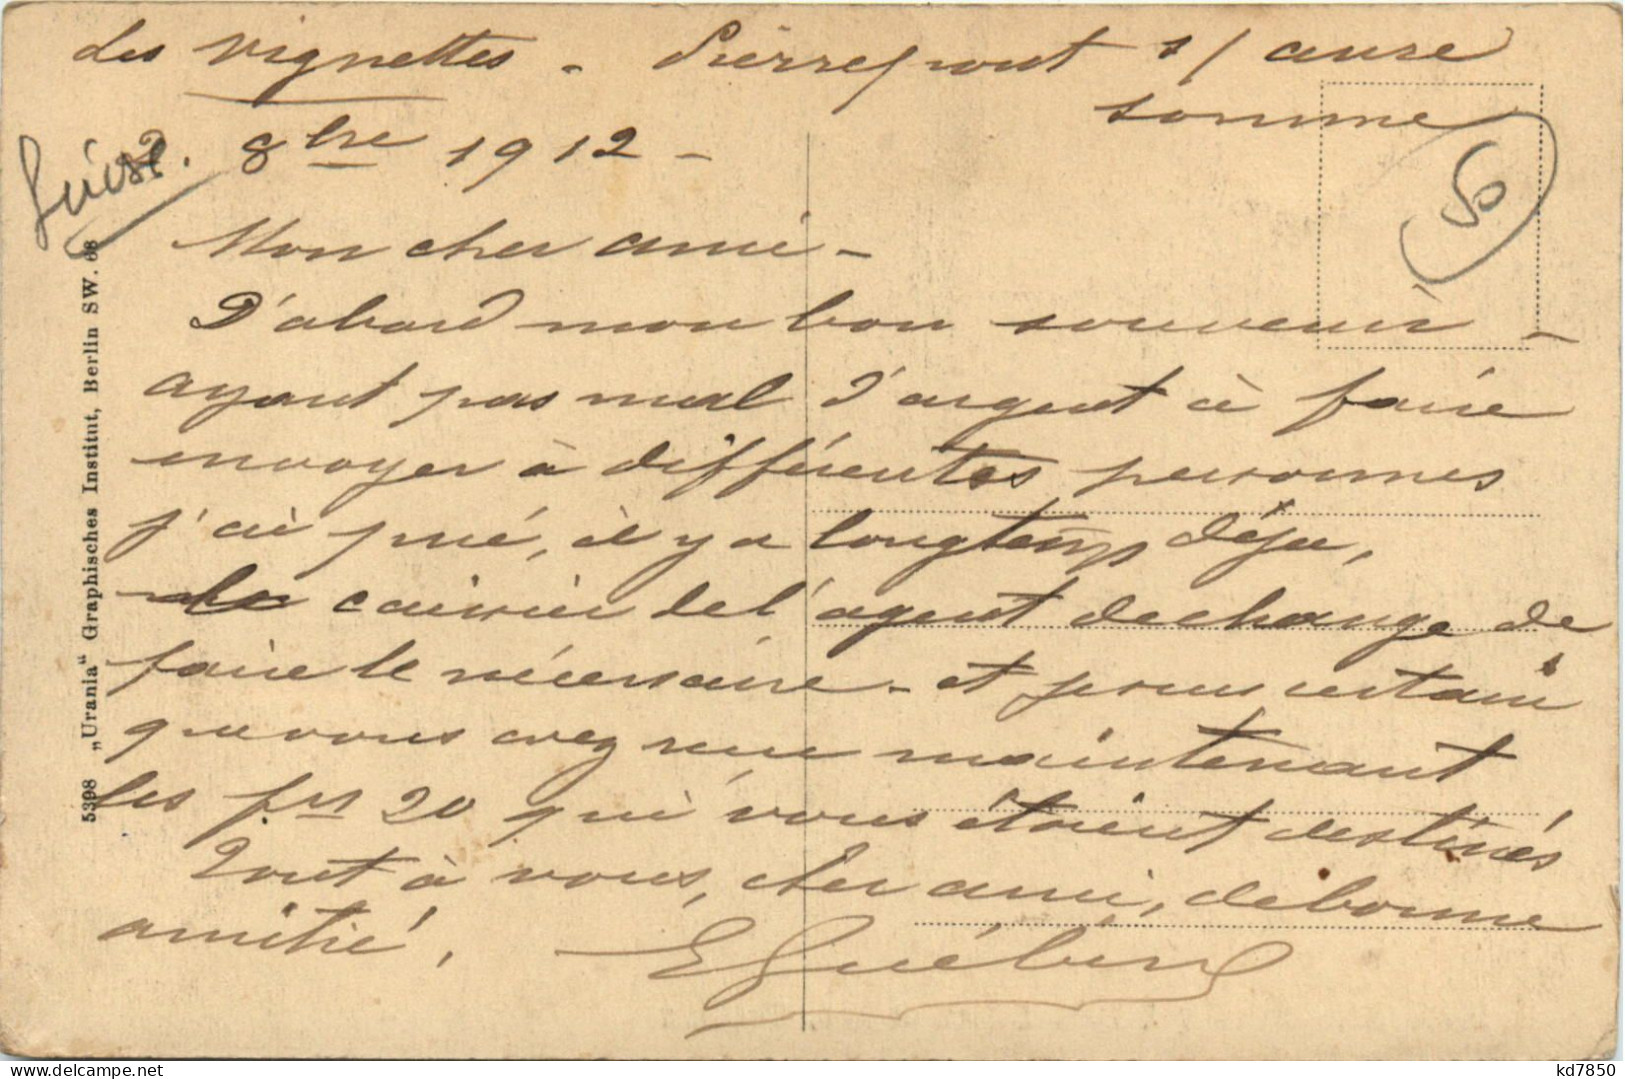 Les vignettes - Pierrepont s/ avre
somme
8bre 1912 -
Suisse.
Mon cher ami -
D'abord mon bon souvenir -
ayant pas mal d'argent à faire
envoyer à différentes personnes
j'ai prié, il y a longtemps déjà,
le caissier de l'agent de change de
faire le nécessaire - et suis certain
que vous avez reçu maintenant
les frs 20 qui vous étaient destinés
Tout à vous, cher ami, de bonne
amitié.
E Guébin
50
5398 „Urania“ Graphisches Institut, Berlin SW. 68
kd7850